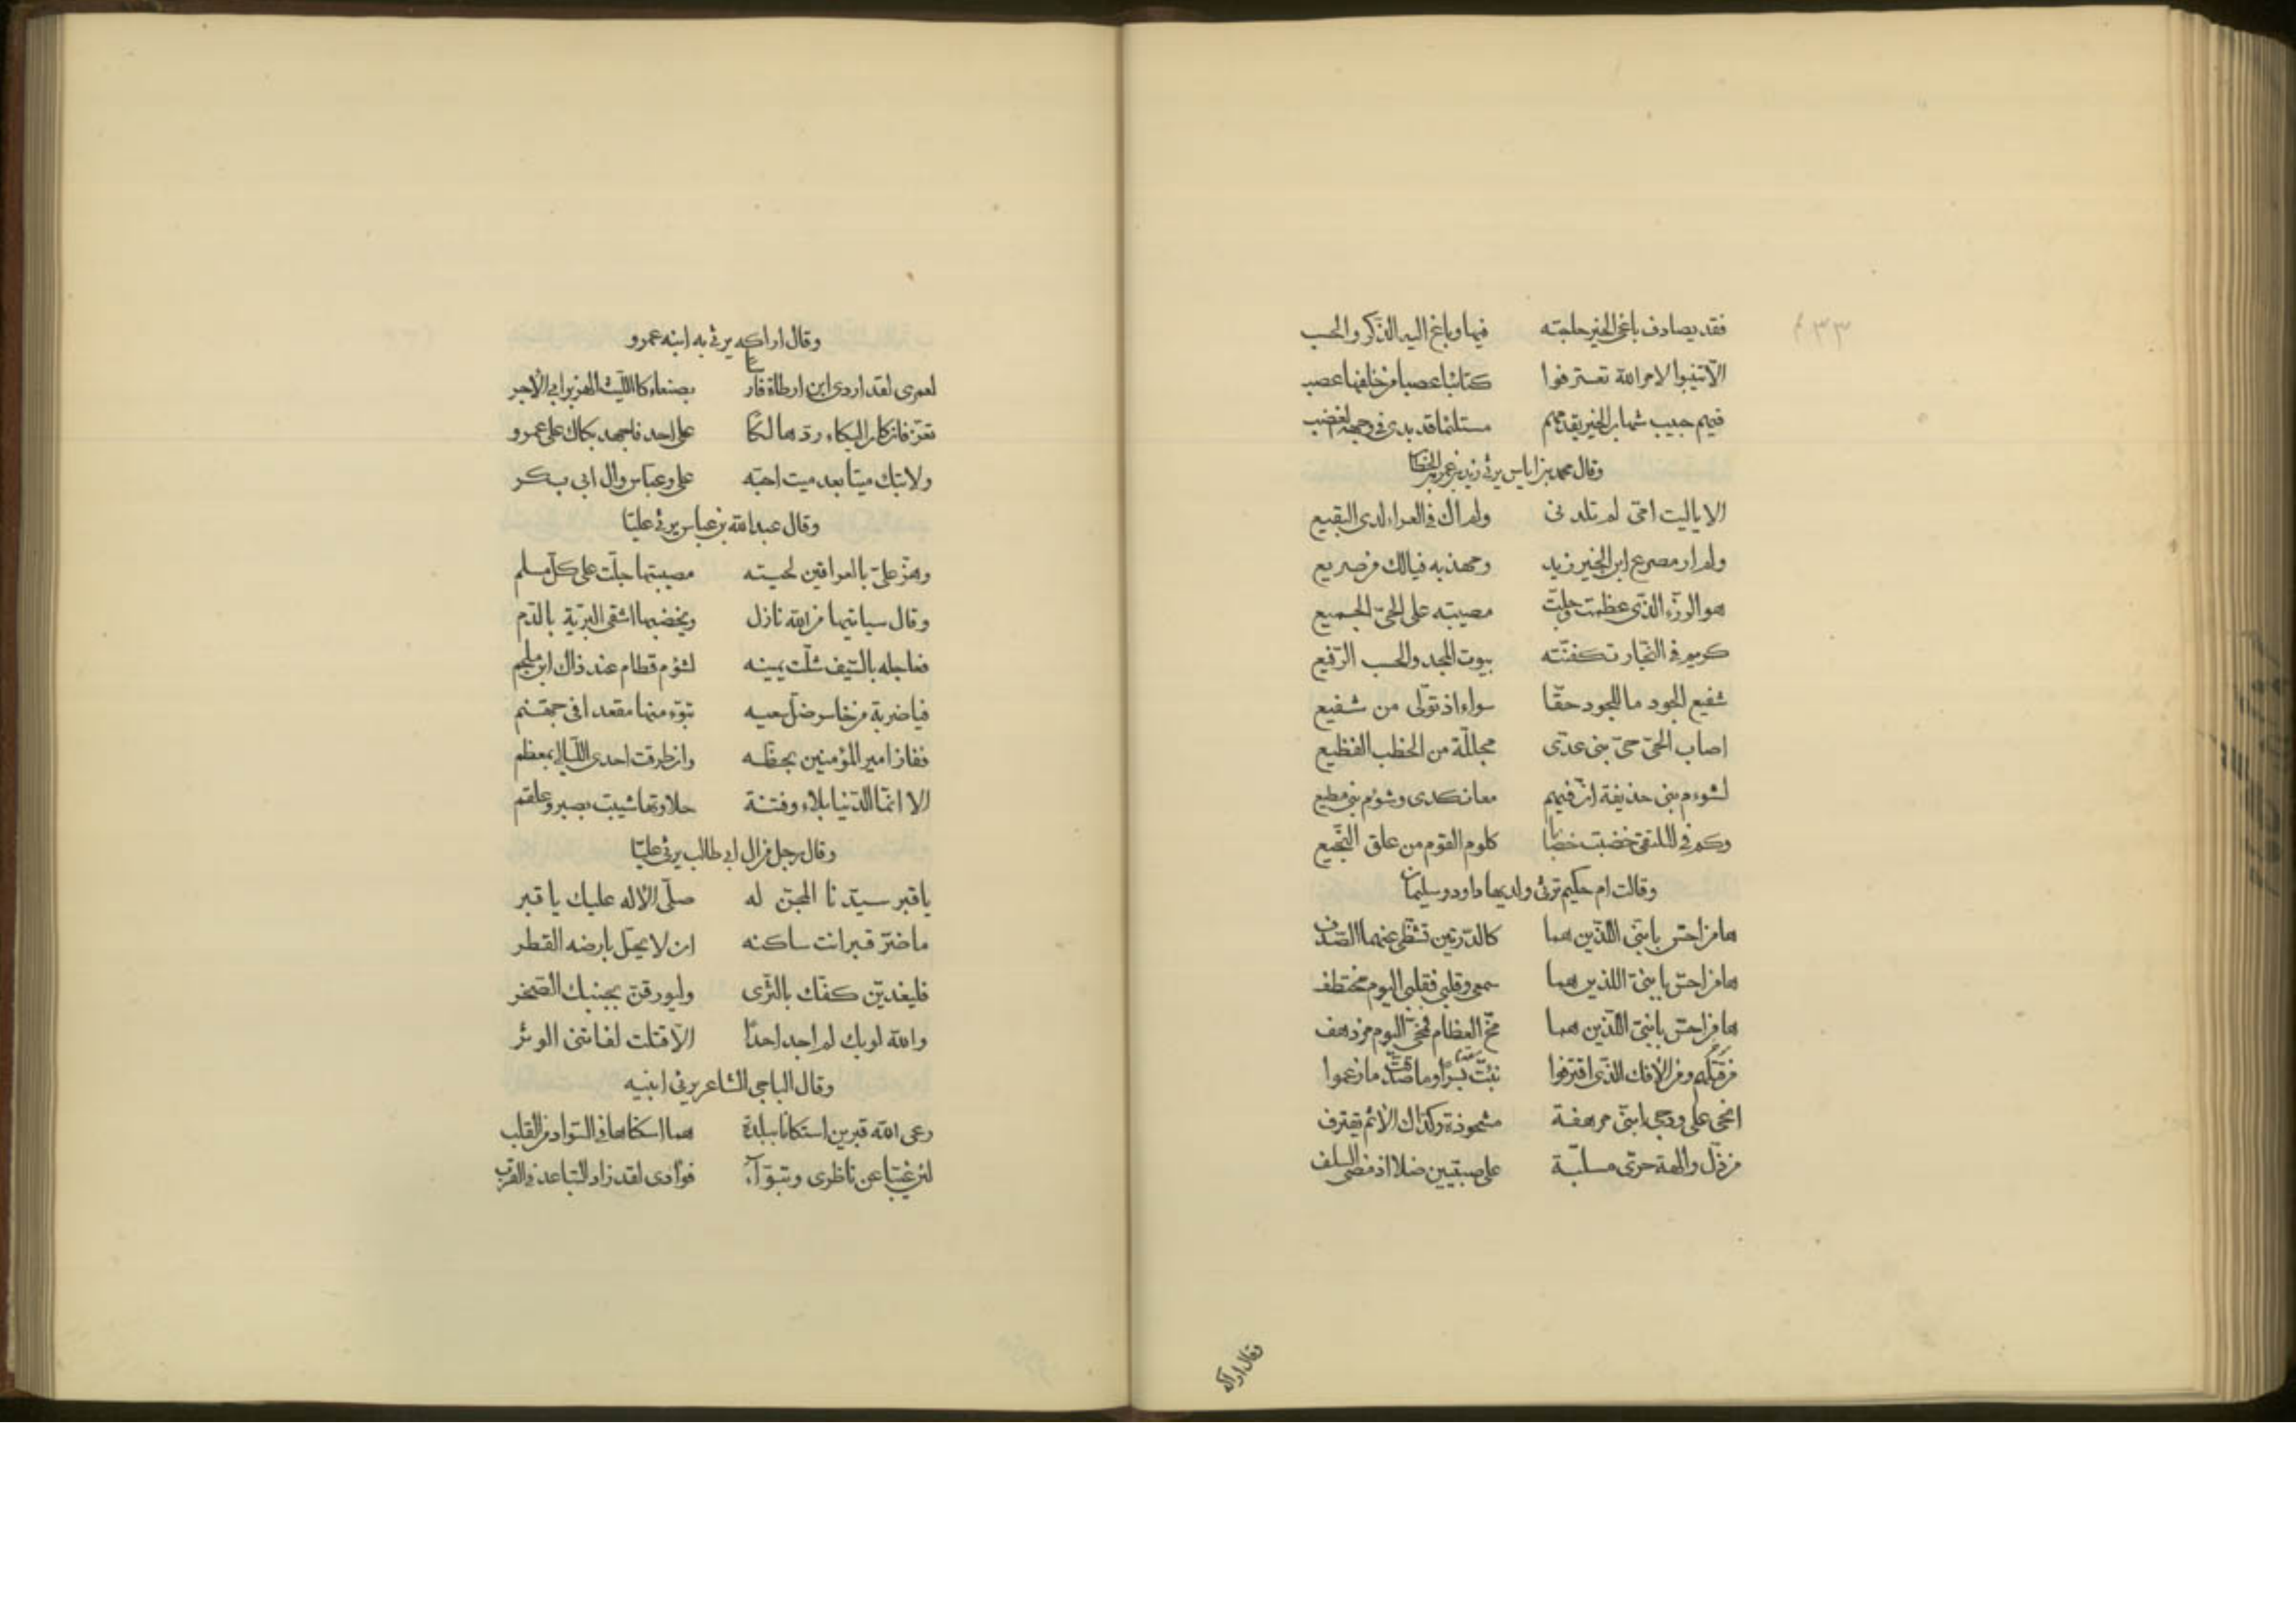 ٤٣٣
فقد يصادف باغى الخير حاجته فيها وباغ اليه الذكر والحسب
الا تنيبوا لامر الله تعترفوا كتائبا عصبا من خلفها عصب
فيهم حبيب شهاب الخير يقدمهم مستلئما قد بدى فى وجهه الغضب
وقال محمد بن اياس يرثى زيد بن عمر بن الخطاب
الا ياليت امى لم تلدنى ولم اك فى العراء لدى البقيع
ولم ار مصرع ابن الخير زيد وحهذ به فيالك من صريع
هو الرزء الذى عظمت وجلت مصيبته على الحىّ الجميع
كريم فى النجار تكفنته بيوت المجد والحسب الرفيع
شفيع الجود ما للجود حقّا سواه اذ تولى من شفيع
اصاب الحىّ حىّ بنى عدى مجللة من الخطب الفظيع
لشوءم بنى حذيفة ان فيهم معا نكدى وشوم بنى مطيع
وكم فى الملتقى خضبت خضابا كلوم القوم من علق النجيع
وقالت ام حكيم ترثى ولديها داود وسليمان
هامن احسّ بابنىّ اللذين هما كالدرتين تشظى عنهما الصدف
هامن احسّ بابنىّ اللذين هما سمعى وقلبى فقلبى اليوم مختطف
هامن احسّ بابنىّ اللذين هما مخّ العظام فمخى اليوم مزدهف
من قيلهم ومن الافك الذى اقترفوا نبئت بسرا وما صدقت ما زعموا
انحى على ودجى ابنىّ مرهفة مشحوذة وكذاك الاثم يقترف
من ذلّ والهة حرى مسلبة على صبيين ضلا اذ مضى السلف
وقال اراكه
وقال اراكه يرثى به ابنه عمرو
لعمرى لقد اردى ابن ارطاة فارسا بصنعاء كالليث الهزبر ابى الاجر
تعزّ فان كان البكاء ردّ هالكا على احد فاجهد بكاك على عمرو
ولا تبك ميتا بعد ميت احبّه على وعباس وال ابى بكر
وقال عبد الله بن عباس يرثى عليّا
وهزّ علىّ بالعراقين لحيته مصيبتها جلت على كل مسلم
وقال سياتيها من الله نازل ويخضبها اشقى البرية بالدم
فعاجله بالسيف شلت يمينه لشؤم قطام عند ذاك ابن ملجم
فياضربة من خاسر ضلّ سعيه تبوّء منها مقعدا فى جهنم
ففاز امير المؤمنين بحظّه وان طرقت احدى الليالى بمعظم
الا انما الدنيا بلاء وفتنة حلاوتها شيبت بصبر وعلقم
وقال رجل من ال ابى طالب يرثى عليّا
ياقبر سيدنا المجنّ له صلّى الاله عليك يا قبر
ما ضرّ قبرا انت ساكنه ان لا يحلّ بارضه القطر
فليغدينّ كفّك بالثرى وليورقنّ بجنبك الصخر
والله لو بك لم اجد احدا الا قتلت لفاتنى الوتر
وقال الباجى الشاعر يرثى ابنيه
رعى الله قبرين استكانا ببلدة هما اسكناها فى السواد من القلب
لئن غيّبا عن ناظرى وتبوّآ فوآدى لقد زاد التباعد فى القرب